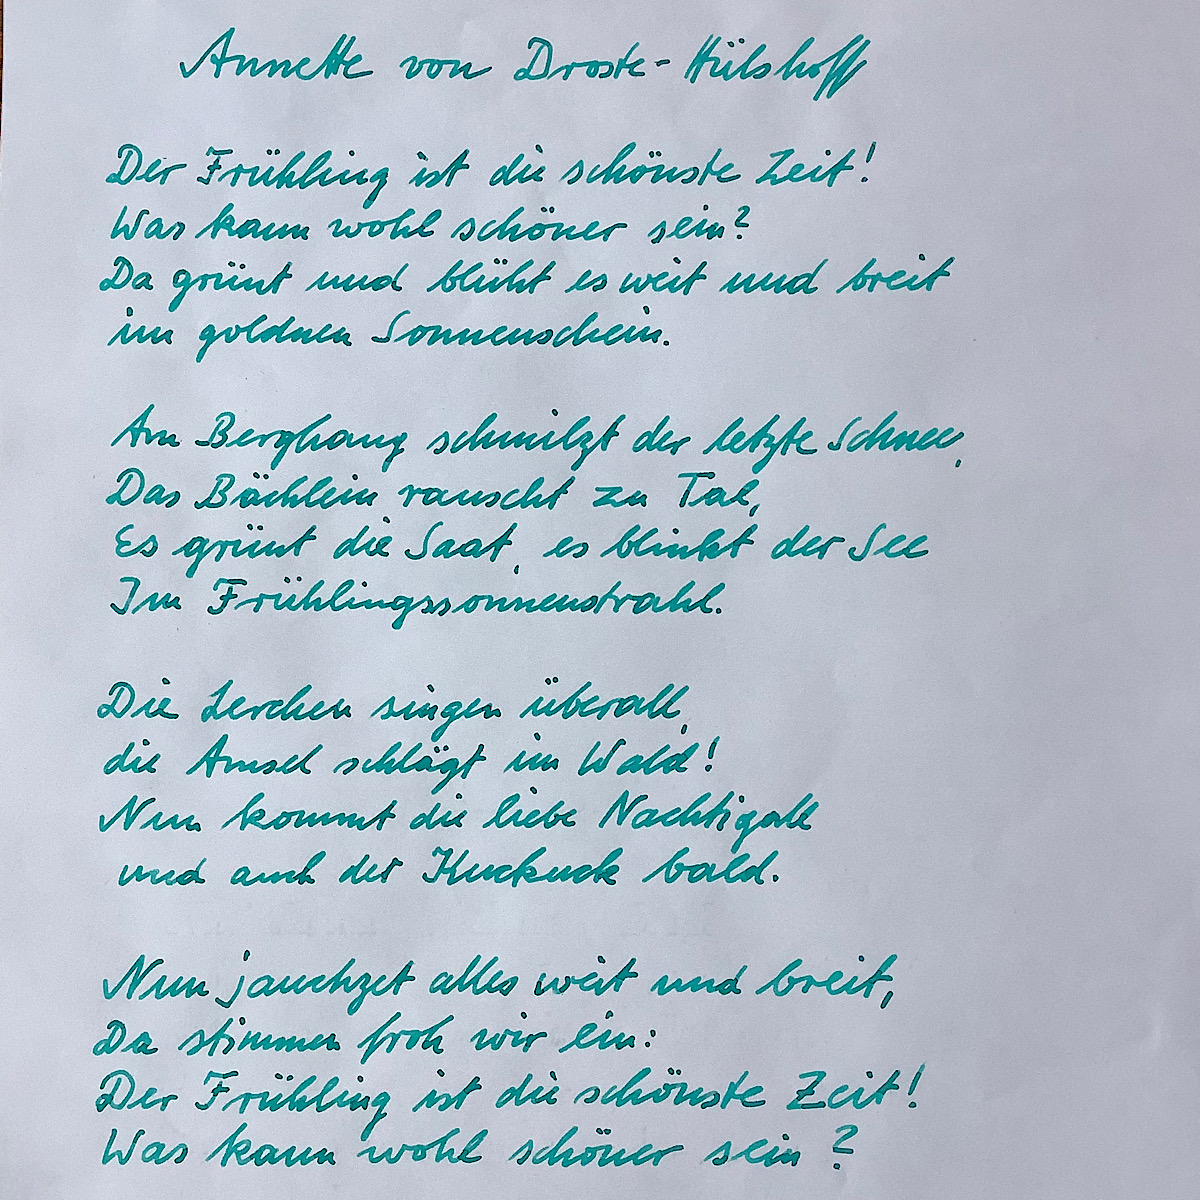 Annette von Droste-Hülshoff
Der Frühling ist die schönste Zeit!
Was kann wohl schöner sein?
Da grünt und blüht es weit und breit
im goldnen Sonnenschein.
Am Berghang schmilzt der letzte Schnee,
Das Bächlein rauscht zu Tal,
Es grünt die Saat, es blinkt der See
Im Frühlingssonnenstrahl.
Die Lerchen singen überall,
die Amsel schlägt im Wald!
Nun kommt die liebe Nachtigall
und auch der Kuckuck bald.
Nun jauchzet alles weit und breit,
Da stimmen froh wir ein:
Der Frühling ist die schönste Zeit!
Was kann wohl schöner sein?